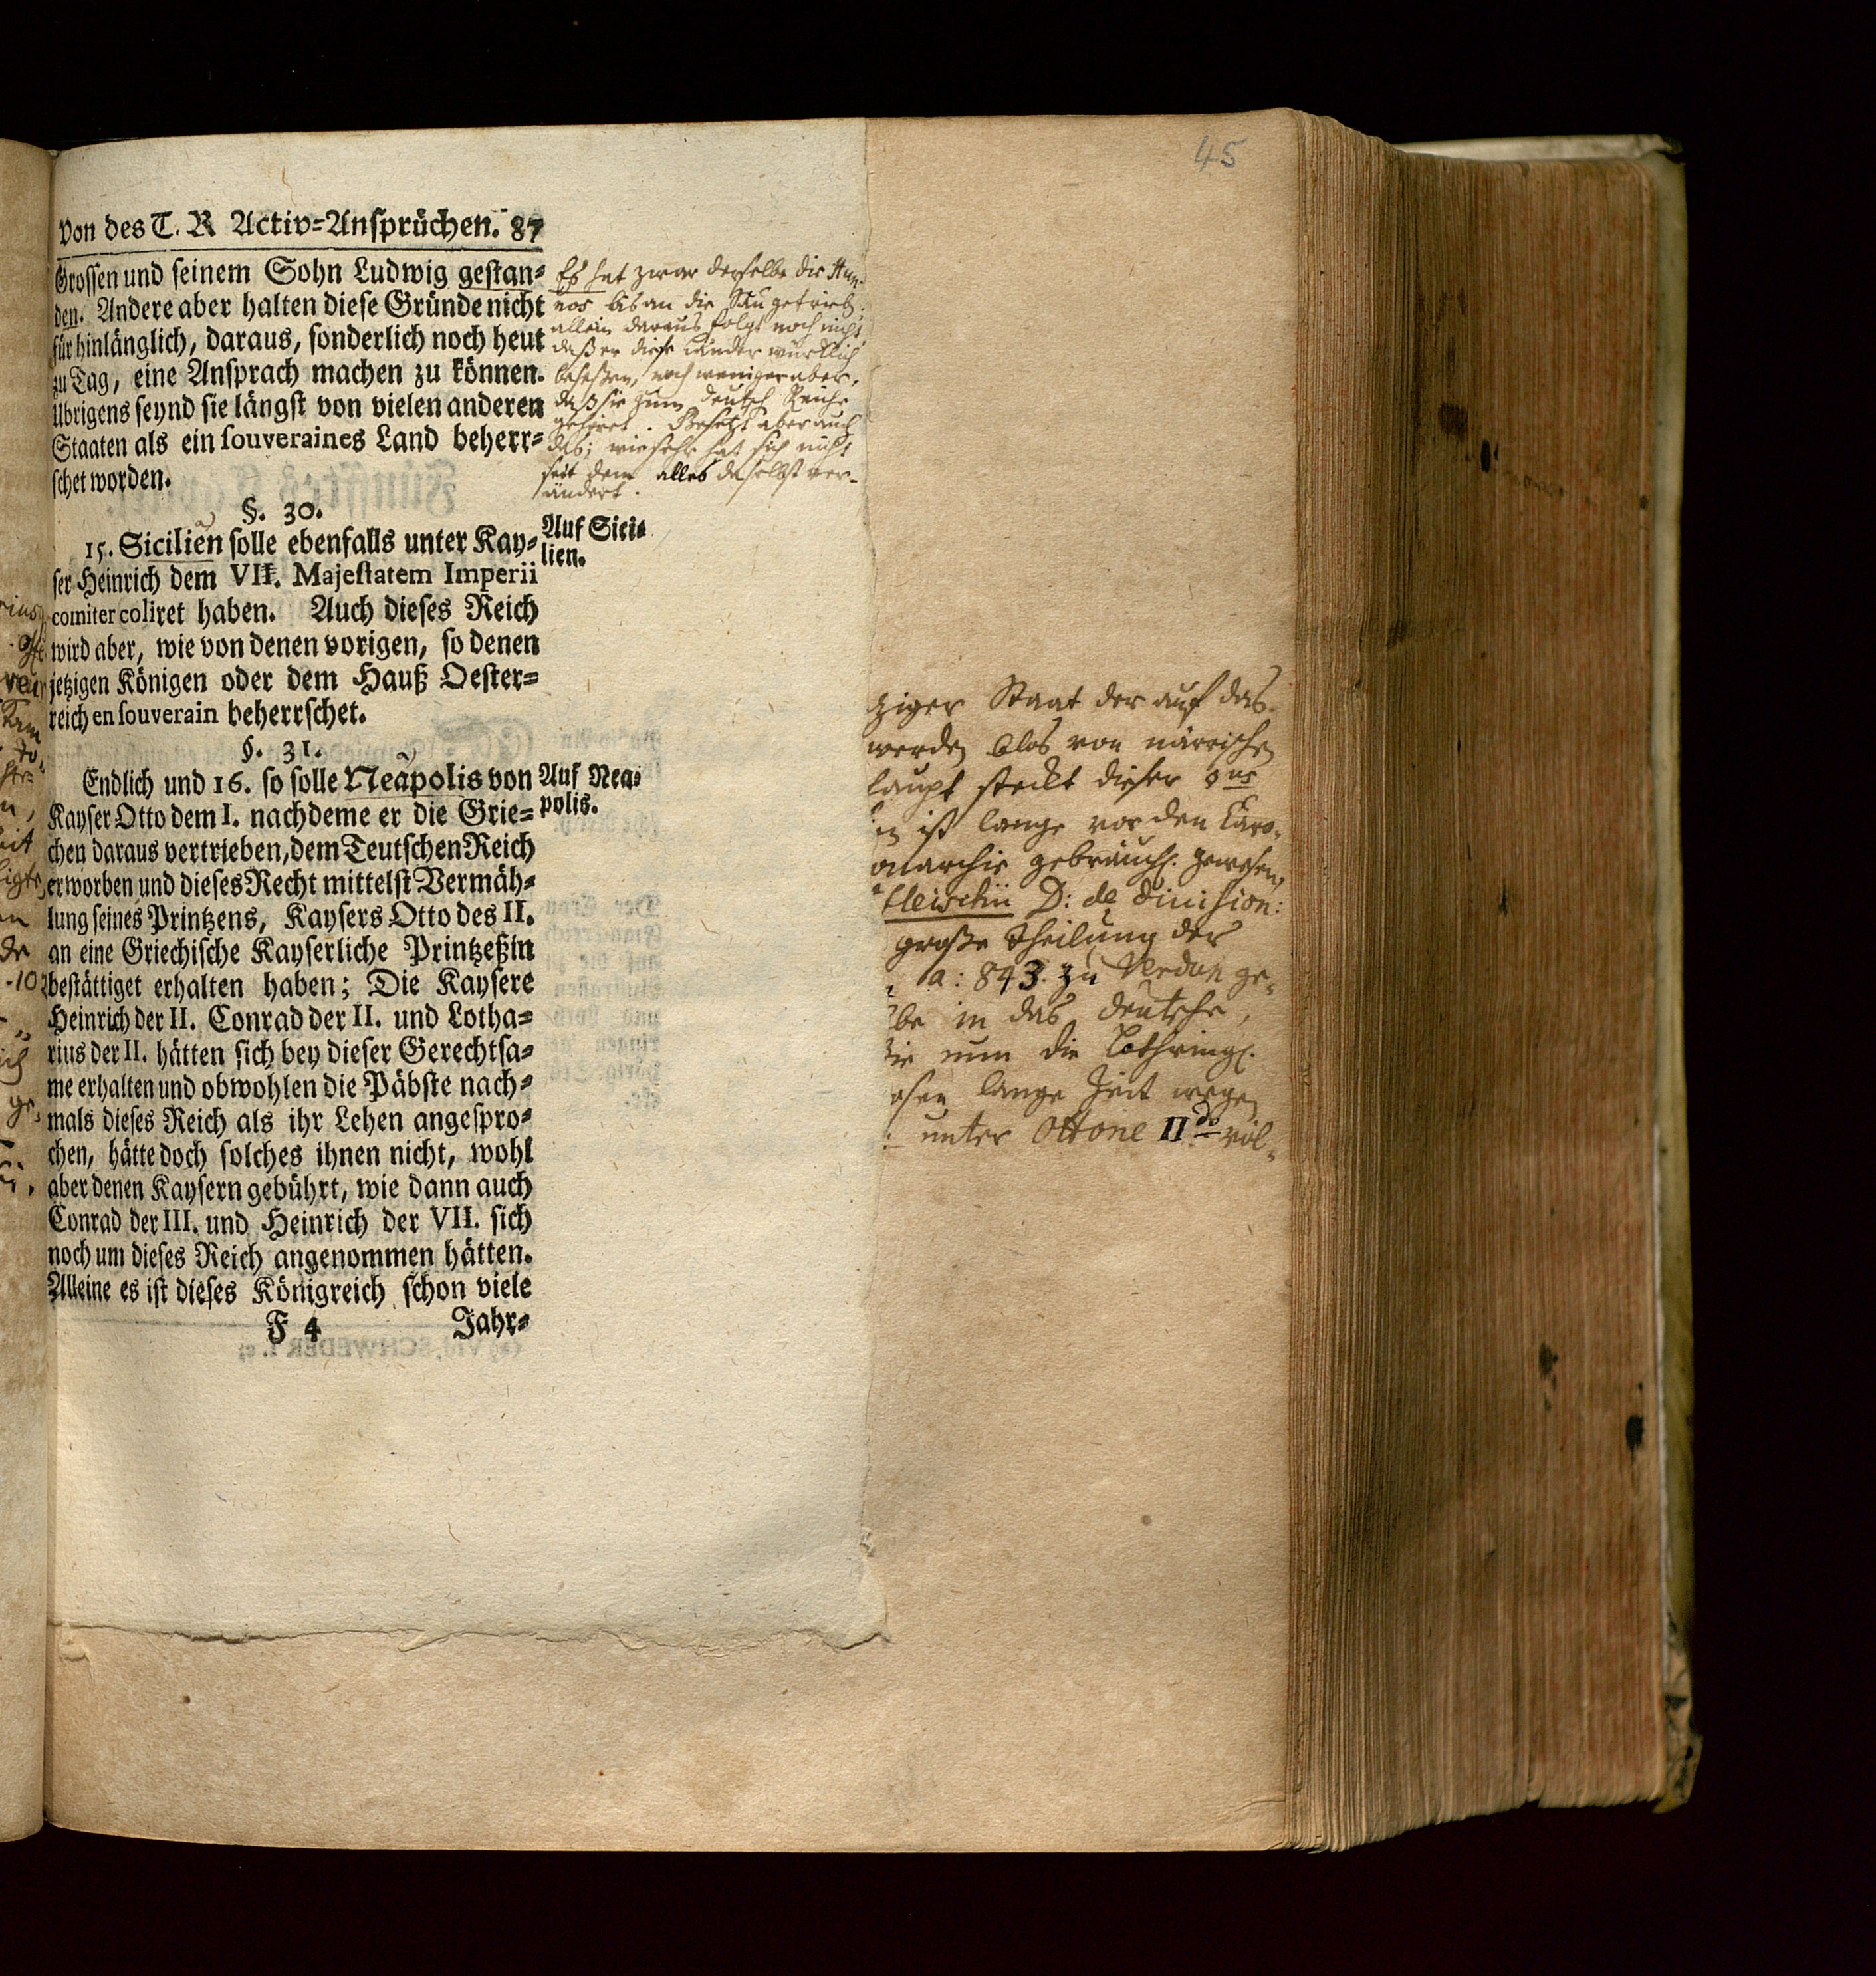 45
Von des T. R Activ-Ansprüchen. 87
Grossen und seinem Sohn Ludwig gestan-
den. Andere aber halten diese Gründe nicht
für hinlänglich, daraus, sonderlich noch heut
zu Tag, eine Ansprach machen zu können.
Ubrigens seynd sie längst von vielen anderen
Staaten als ein souveraines Land beherr-
schet worden.
Es hat zwar derselbe die Hun-
nos bis an die Sau getrieb.
allein daraus folgt noch nicht
daß er diese Länder würklich
besessen, noch weniger aber,
daß sie zum deutsch Reiche
gehöret. Gesetzt aber auch
das; wie sehr hat sich nicht
seit dem alles daselbst ver-
ändert.
§. 30.
15. Sicilien solle ebenfalls unter Kay-
ser Heinrich dem VII. Majestatem Imperii
comiter coliret haben. Auch dieses Reich
wird aber, wie von denen vorigen, so denen
jetzigen Königen oder dem Hauß Oester-
reich en souverain beherrschet.
Auf Sici-
lien.
§. 31.
Endlich und 16. so solle Neapolis von
Kayser Otto dem I. nachdeme er die Grie-
chen daraus vertrieben, dem Teutschen Reich
erworben und dieses Recht mittelst Vermäh-
lung seines Printzens, Kaysers Otto des II.
an eine Griechische Kayserliche Printzeßin
bestättiget erhalten haben; Die Kaysere
Heinrich der II. Conrad der II. und Lotha-
rius der II. hätten sich bey dieser Gerechtsa-
me erhalten und obwohlen die Päbste nach-
mals dieses Reich als ihr Lehen angespro-
chen, hätte doch solches ihnen nicht, wohl
aber denen Kaysern gebührt, wie dann auch
Conrad der III. und Heinrich der VII. sich
noch um dieses Reich angenommen hätten.
Alleine es ist dieses Königreich schon viele
F 4 Jahr-
Auf Nea-
polis.
ziger Staat der auf das
werden blos von närrischen
haupt steckt dieser
ist lange vor den Caro-
onarchie gebräuchl. gewesen,
D: de division:
große Theilung der
a: 843. zu Verdun ge-
be in das deutsche,
die nun die Lothring.
osen lange Zeit wegen
unter Ottone IIdo völ-